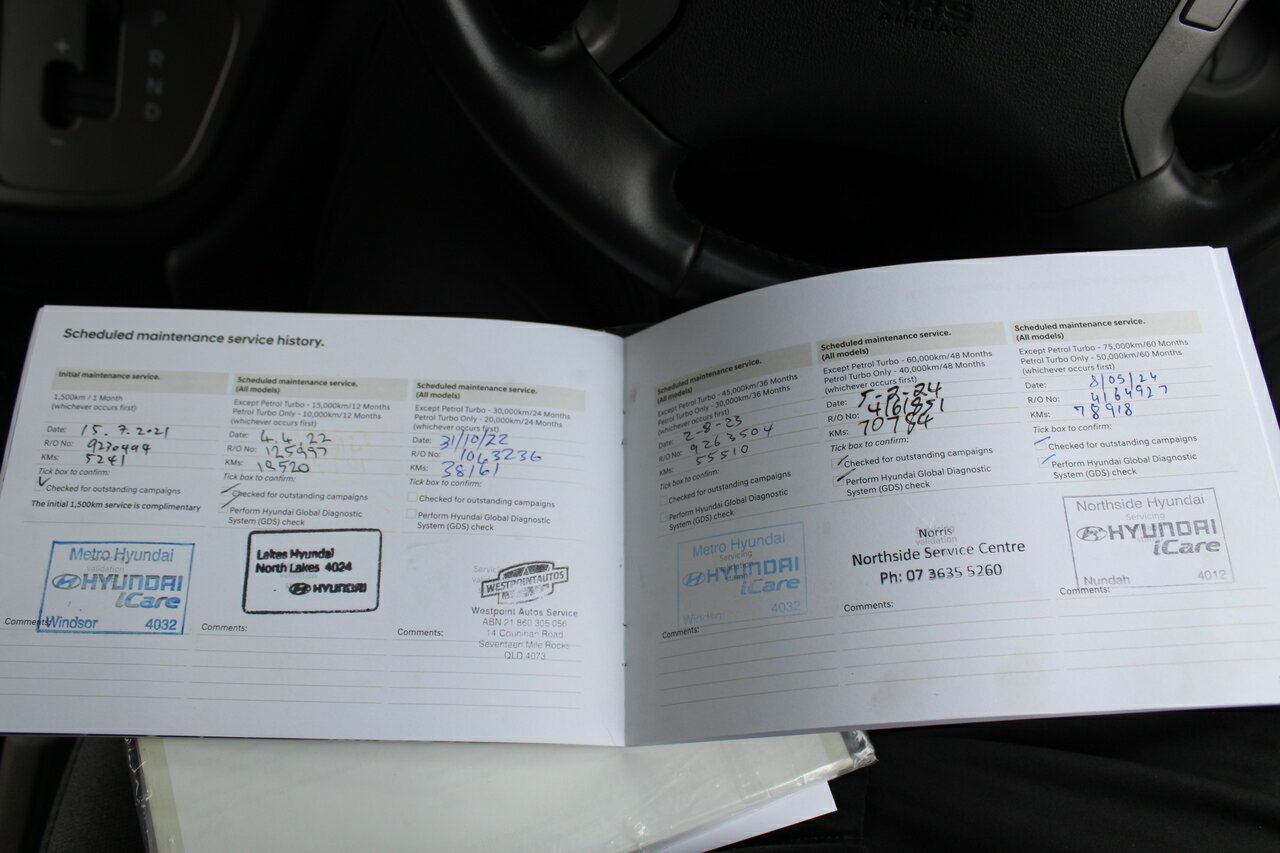 SRS
AIRBAG
+
P
R
N
D
-
Scheduled maintenance service history.
Initial maintenance service.
1,500km / 1 Month
(whichever occurs first)
Date: 15.7.2021
R/O No: 9270494
KMs: 5241
Tick box to confirm:
Checked for outstanding campaigns
The initial 1,500km service is complimentary
Servicing
validation
Metro Hyundai
HYUNDAI
iCare
Windsor 4032
Comments:
Scheduled maintenance service.
(All models)
Except Petrol Turbo - 15,000km/12 Months
Petrol Turbo Only - 10,000km/12 Months
(whichever occurs first)
Date: 4.4.22
R/O No: 125997
KMs: 19520
Tick box to confirm:
Checked for outstanding campaigns
Perform Hyundai Global Diagnostic
System (GDS) check
Lakes Hyundai
North Lakes 4024
HYUNDAI
Comments:
Scheduled maintenance service.
(All models)
Except Petrol Turbo - 30,000km/24 Months
Petrol Turbo Only - 20,000km/24 Months
(whichever occurs first)
Date: 31/10/22
R/O No: 1063236
KMs: 38161
Tick box to confirm:
Checked for outstanding campaigns
Perform Hyundai Global Diagnostic
System (GDS) check
WESTPOINTAUTOS
Westpoint Autos Service
ABN 21 860 305 056
14 Counihan Road
Seventeen Mile Rocks
QLD 4073
Comments:
Scheduled maintenance service.
(All models)
Except Petrol Turbo - 45,000km/36 Months
Petrol Turbo Only - 30,000km/36 Months
(whichever occurs first)
Date: 2-8-23
R/O No: 9263504
KMs: 55510
Tick box to confirm:
Checked for outstanding campaigns
Perform Hyundai Global Diagnostic
System (GDS) check
Metro Hyundai
HYUNDAI
iCare
Windsor 4032
Comments:
Scheduled maintenance service.
(All models)
Except Petrol Turbo - 60,000km/48 Months
Petrol Turbo Only - 40,000km/48 Months
(whichever occurs first)
Date:
R/O No:
KMs: 70784
Tick box to confirm:
Checked for outstanding campaigns
Perform Hyundai Global Diagnostic
System (GDS) check
Servicing
validation
Norris
Northside Service Centre
Ph: 07 3635 5260
Comments:
Scheduled maintenance service.
(All models)
Except Petrol Turbo - 75,000km/60 Months
Petrol Turbo Only - 50,000km/60 Months
(whichever occurs first)
Date: 8/05/24
R/O No: 4164927
KMs: 78918
Tick box to confirm:
Checked for outstanding campaigns
Perform Hyundai Global Diagnostic
System (GDS) check
Northside Hyundai
Servicing
validation
HYUNDAI
iCare
Nundah 4012
Comments: